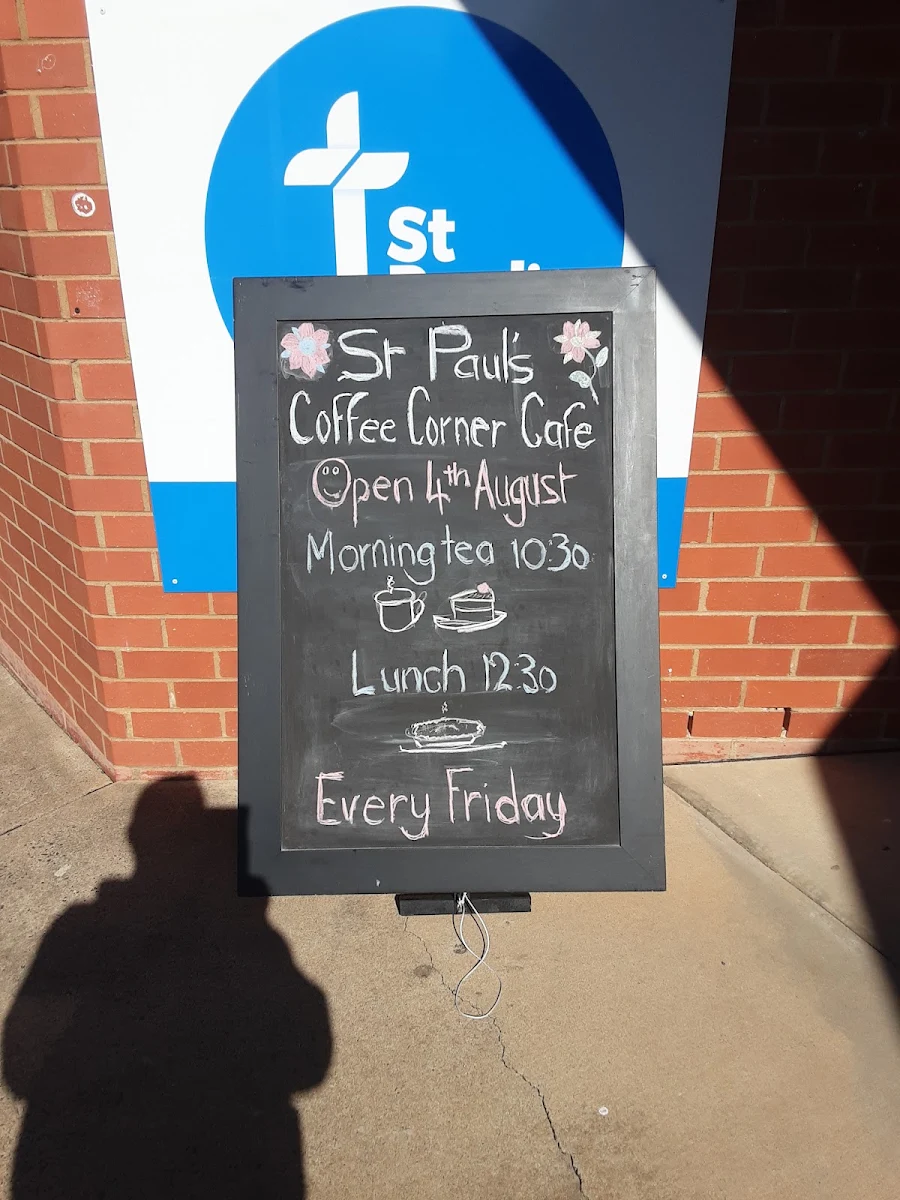 St
St Paul's
Coffee Corner Cafe
Open 4th August
Morning tea 10:30
Lunch 12.30
Every Friday